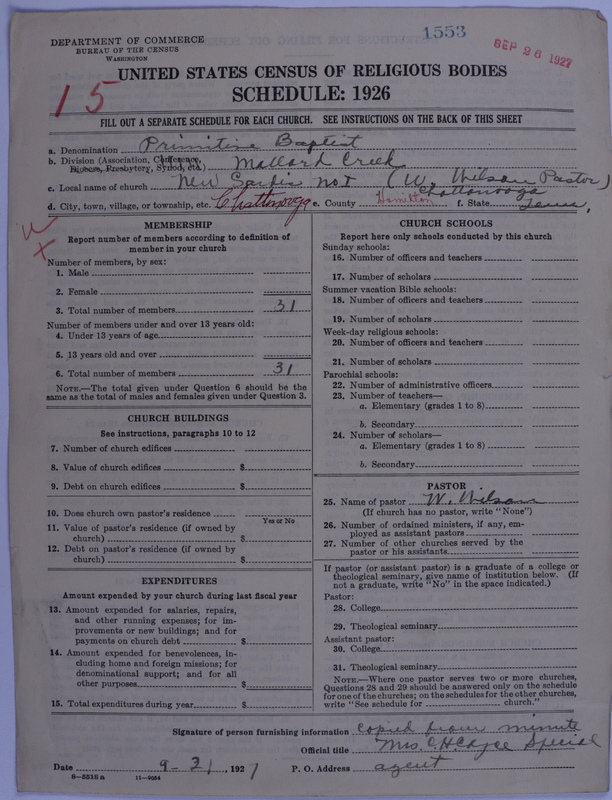 1553
SEP 26 1927
DEPARTMENT OF COMMERCE
BUREAU OF THE CENSUS
WASHINGTON
UNITED STATES CENSUS OF RELIGIOUS BODIES
SCHEDULE: 1926
15
FILL OUT A SEPARATE SCHEDULE FOR EACH CHURCH. SEE INSTRUCTIONS ON THE BACK OF THIS SHEET
a. Denomination Primitive Baptist
b. Division (Association, Conference, Diocese, Presbytery, Synod, etc.) Mallard Creek
c. Local name of church New Gardin No 1 (W. Wilson Pastor)
Chattanooga
d. City, town, village, or township, etc. Chattanooga e. County Hamilton f. State Tenn.
MEMBERSHIP
Report number of members according to definition of
member in your church
Number of members, by sex:
1. Male
2. Female
3. Total number of members 31
Number of members under and over 13 years old:
4. Under 13 years of age
5. 13 years old and over
6. Total number of members 31
NOTE.—The total given under Question 6 should be the
same as the total of males and females given under Question 3.
CHURCH BUILDINGS
See instructions, paragraphs 10 to 12
7. Number of church edifices
8. Value of church edifices $
9. Debt on church edifices $
10. Does church own pastor's residence
Yes or No
11. Value of pastor's residence (if owned by
church) $
12. Debt on pastor's residence (if owned by
church) $
EXPENDITURES
Amount expended by your church during last fiscal year
13. Amount expended for salaries, repairs,
and other running expenses; for im-
provements or new buildings; and for
payments on church debt $
14. Amount expended for benevolences, in-
cluding home and foreign missions; for
denominational support; and for all
other purposes $
15. Total expenditures during year $
CHURCH SCHOOLS
Report here only schools conducted by this church
Sunday schools:
16. Number of officers and teachers
17. Number of scholars
Summer vacation Bible schools:
18. Number of officers and teachers
19. Number of scholars
Week-day religious schools:
20. Number of officers and teachers
21. Number of scholars
Parochial schools:
22. Number of administrative officers
23. Number of teachers—
a. Elementary (grades 1 to 8)
b. Secondary
24. Number of scholars—
a. Elementary (grades 1 to 8)
b. Secondary
PASTOR
25. Name of pastor W. Wilson
(If church has no pastor, write "None")
26. Number of ordained ministers, if any, em-
ployed as assistant pastors
27. Number of other churches served by the
pastor or his assistants
If pastor (or assistant pastor) is a graduate of a college or
theological seminary, give name of institution below. (If
not a graduate, write "No" in the space indicated.)
Pastor:
28. College
29. Theological seminary
Assistant pastor:
30. College
31. Theological seminary
NOTE.—Where one pastor serves two or more churches,
Questions 28 and 29 should be answered only on the schedule
for one of the churches; on the schedules for the other churches,
write "See schedule for church."
Signature of person furnishing information copied from minute
Official title Mrs. C.H. Cayce Special
Date 9-21, 1927 P. O. Address agent
8—5516 a 11—9034